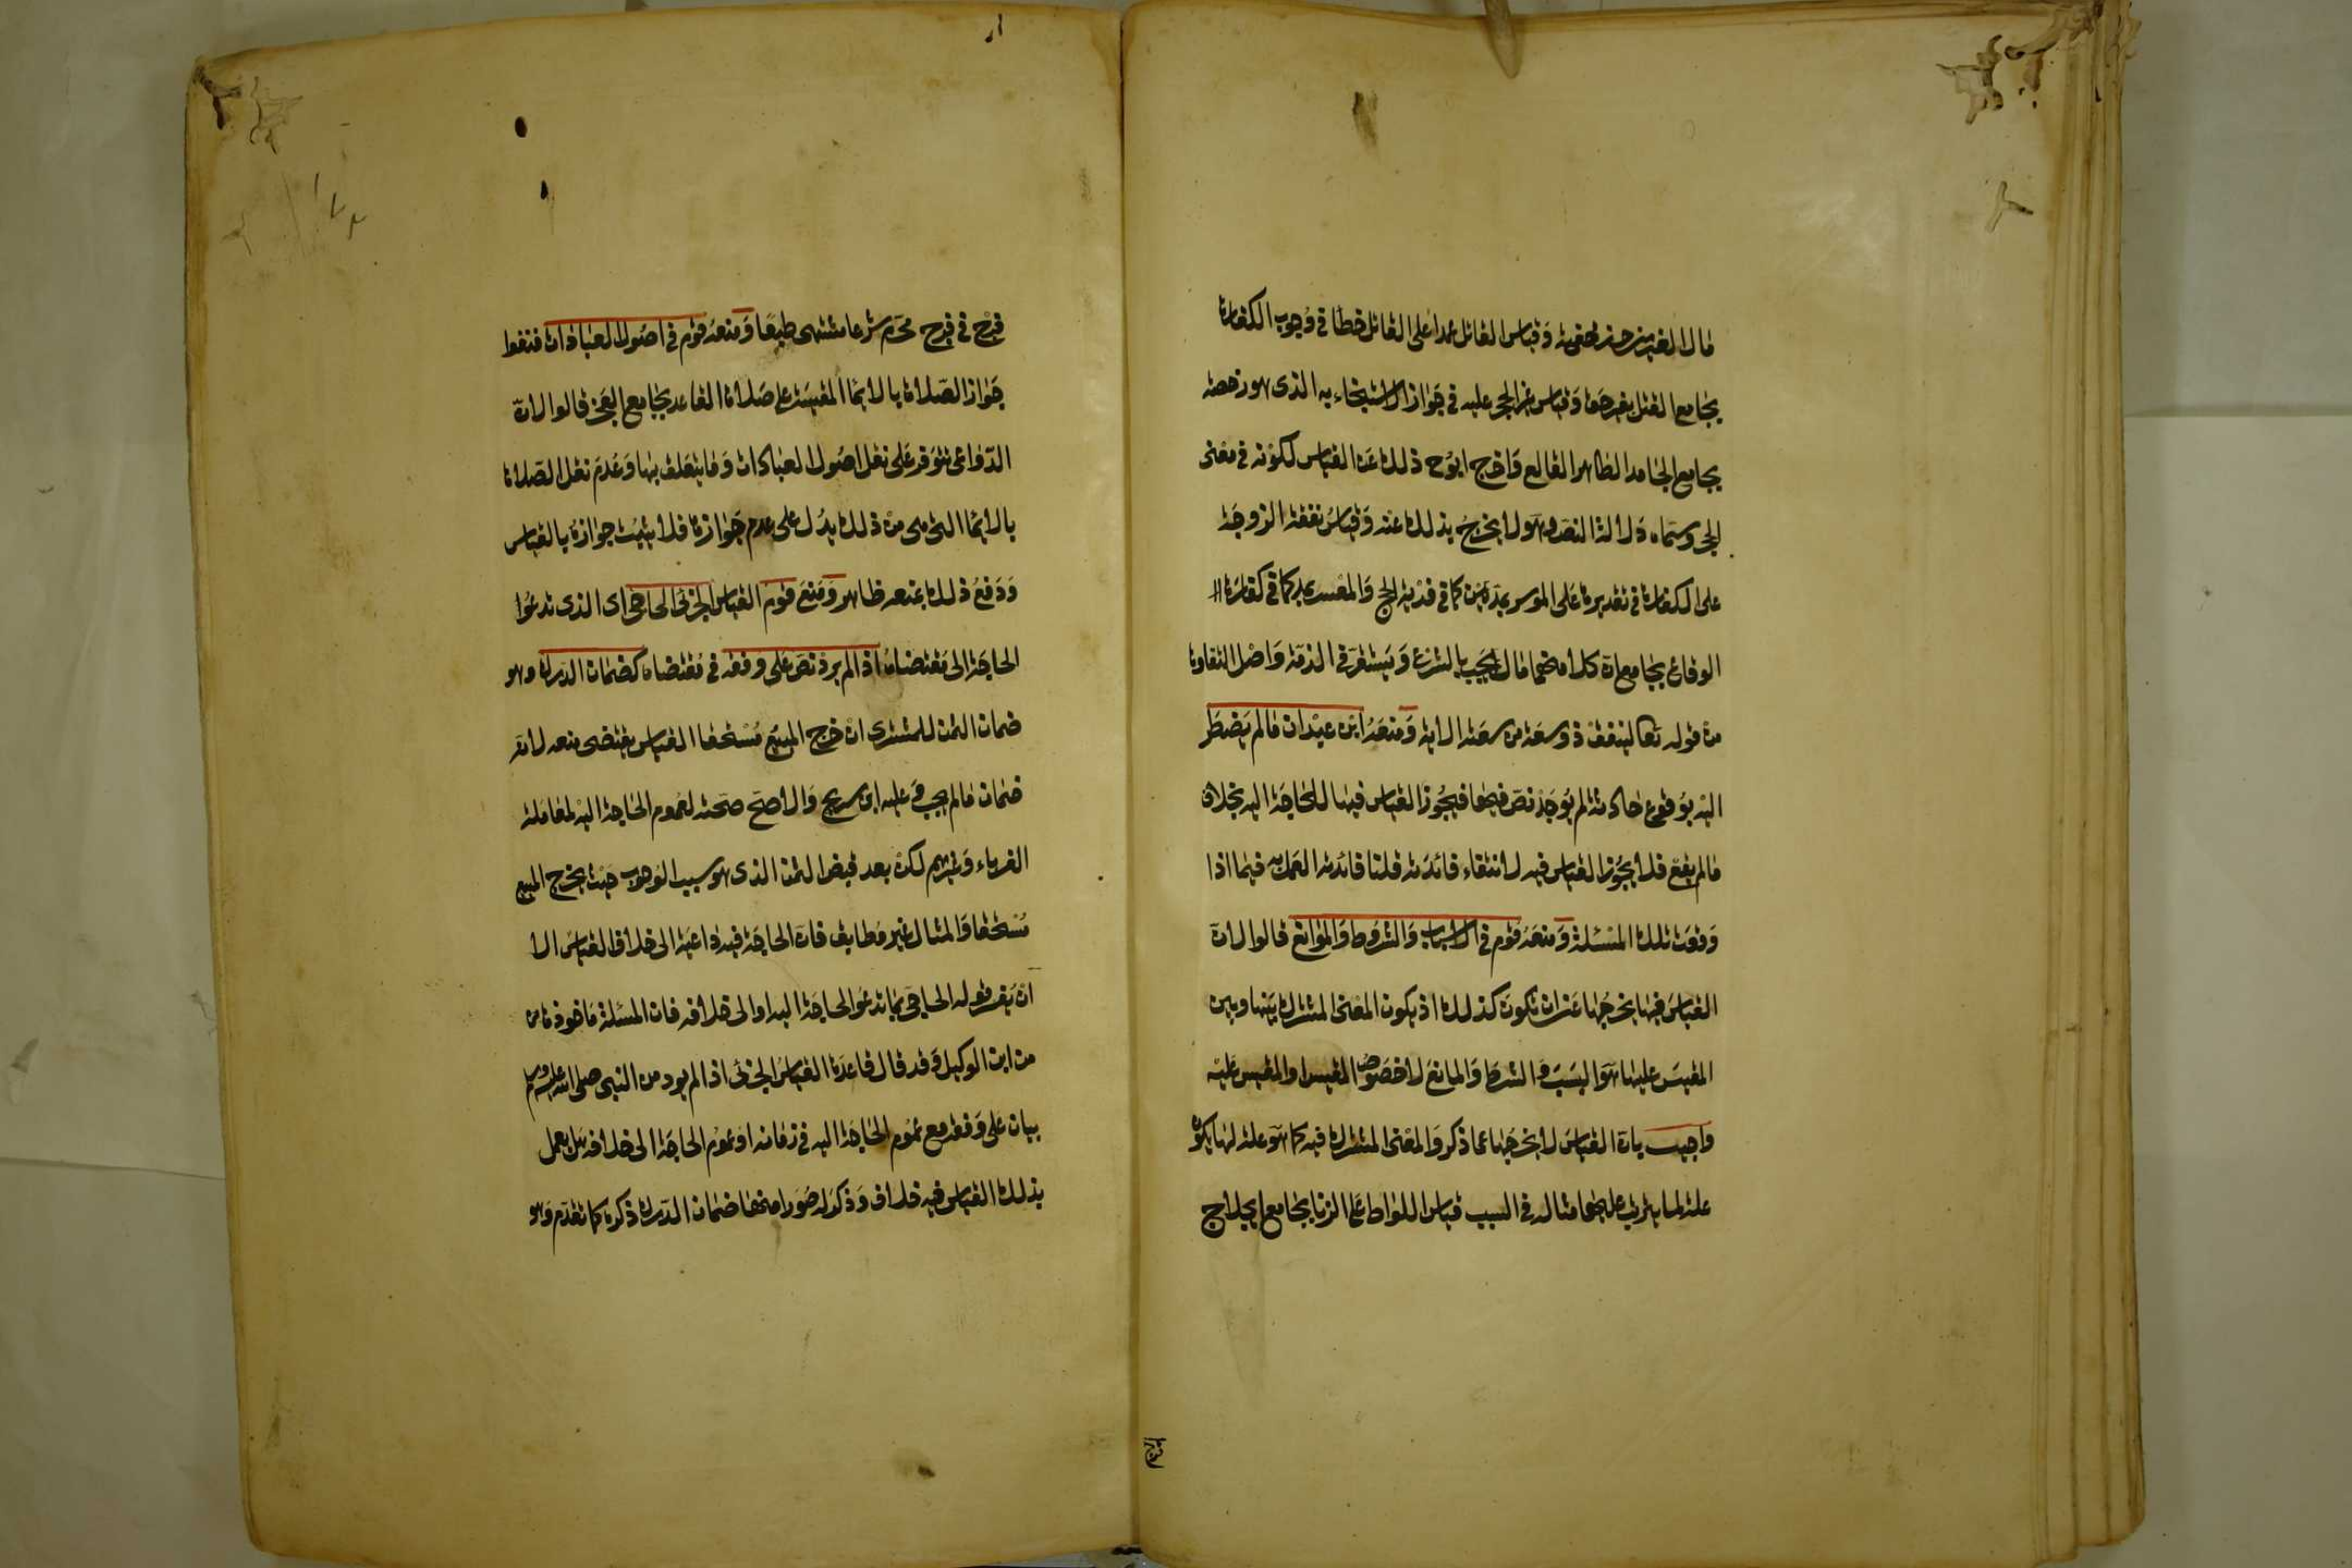 مال الغير من حرز خفية وقياس القاتل عمدا على القاتل خطا في وجوب الكفارة
بجامع القتل بغير حق وقياس غير الحجر عليه في جواز الاستنجاء به الذي هو رخصة
بجامع الجامد الطاهر القالع واخرج ابو ح ذلك عن القياس لكونه في معنى
الحجر وسماه دلالة النص وهو لا يخرج بذلك عنه وقياس نفقة الزوجة
على الكفارة في تقديرها على الموسر بمدين كما في فدية الحج والمعسر بمد كما في كفارة
الوقاع بجامع ان كلا منهما مال يجب بالشرع ويستقر في الذمة واصل التفاوت
من قوله تعالى لينفق ذو سعة من سعته الاية ومنعه ابن عبدان ما لم يضطر
اليه بوقوع حادثة لم يوجد نص فيها فيجوز القياس فيها للحاجة اليه بخلاف
ما لم يقع فلا يجوز القياس فيه لانتفاء فائدته قلنا فائدته العمل به فيما اذا
وقعت تلك المسئلة ومنعه قوم في الاسباب والشروط والموانع قالوا لان
القياس فيها يخرجها عن ان تكون كذلك اذ يكون المعنى المشترك بينها وبين
المقيس عليها هو السبب والشرط والمانع لا خصوص المقيس او المقيس عليه
واجيب بان القياس لا يخرجها عما ذكر والمعنى المشترك فيه كما هو علة لها يكون
علة لما يترتب عليها مثاله في السبب قياس اللواط على الزنا بجامع ايلاج
فرج
فرج في فرج محرم شرعا مشتهى طبعا ومنعه قوم في اصول العبادات فنفوا
جواز الصلاة بالايماء المقيسة على صلاة القاعد بجامع العجز قالوا لان
الدواعي تتوفر على نقل اصول العبادات وما يتعلق بها وعدم نقل الصلاة
بالايماء التي هي من ذلك يدل على عدم جوازها فلا يثبت جوازها بالقياس
ودفع ذلك بمنعه ظاهر ومنع قوم القياس الجزئي الحاجي اي الذي تدعوا
الحاجة الى مقتضاه اذا لم يرد نص على وفقه في مقتضاه كضمان الدرك وهو
ضمان الثمن للمشتري ان خرج المبيع مستحقا القياس يقتضي منعه لانه
ضمان ما لم يجب وعليه ابن سريج والاصح صحته لعموم الحاجة اليه لمعاملة
الغرباء وغيرهم لكن بعد قبض الثمن الذي هو سبب الوجوب حيث يخرج المبيع
مستحقا والمثال غير مطابق فان الحاجة فيه داعية الى خلاف القياس الا
ان يفسر قوله الحاجي بما تدعو الحاجة اليه او الى خلافه فان المسئلة ماخوذة من
من ابن الوكيل وقد قال قاعدة القياس الجزئي اذا لم يرد من النبي صلى الله عليه وسلم
بيان على وفقه مع عموم الحاجة اليه في زمانه او عموم الحاجة الى خلافه هل يعمل
بذلك القياس فيه خلاف وذكر له صورا منها ضمان الدرك ذكره كما تقدم وهو